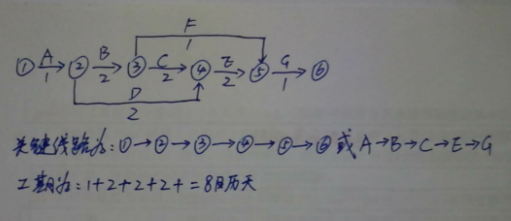 F
1
① A 1 ② B 2 ③ C 2 ④ E 2 ⑤ G 1 ⑥
D
2
关键线路为:①→②→③→④→⑤→⑥ 或 A→B→C→E→G
工期为:1+2+2+2+=8日历天